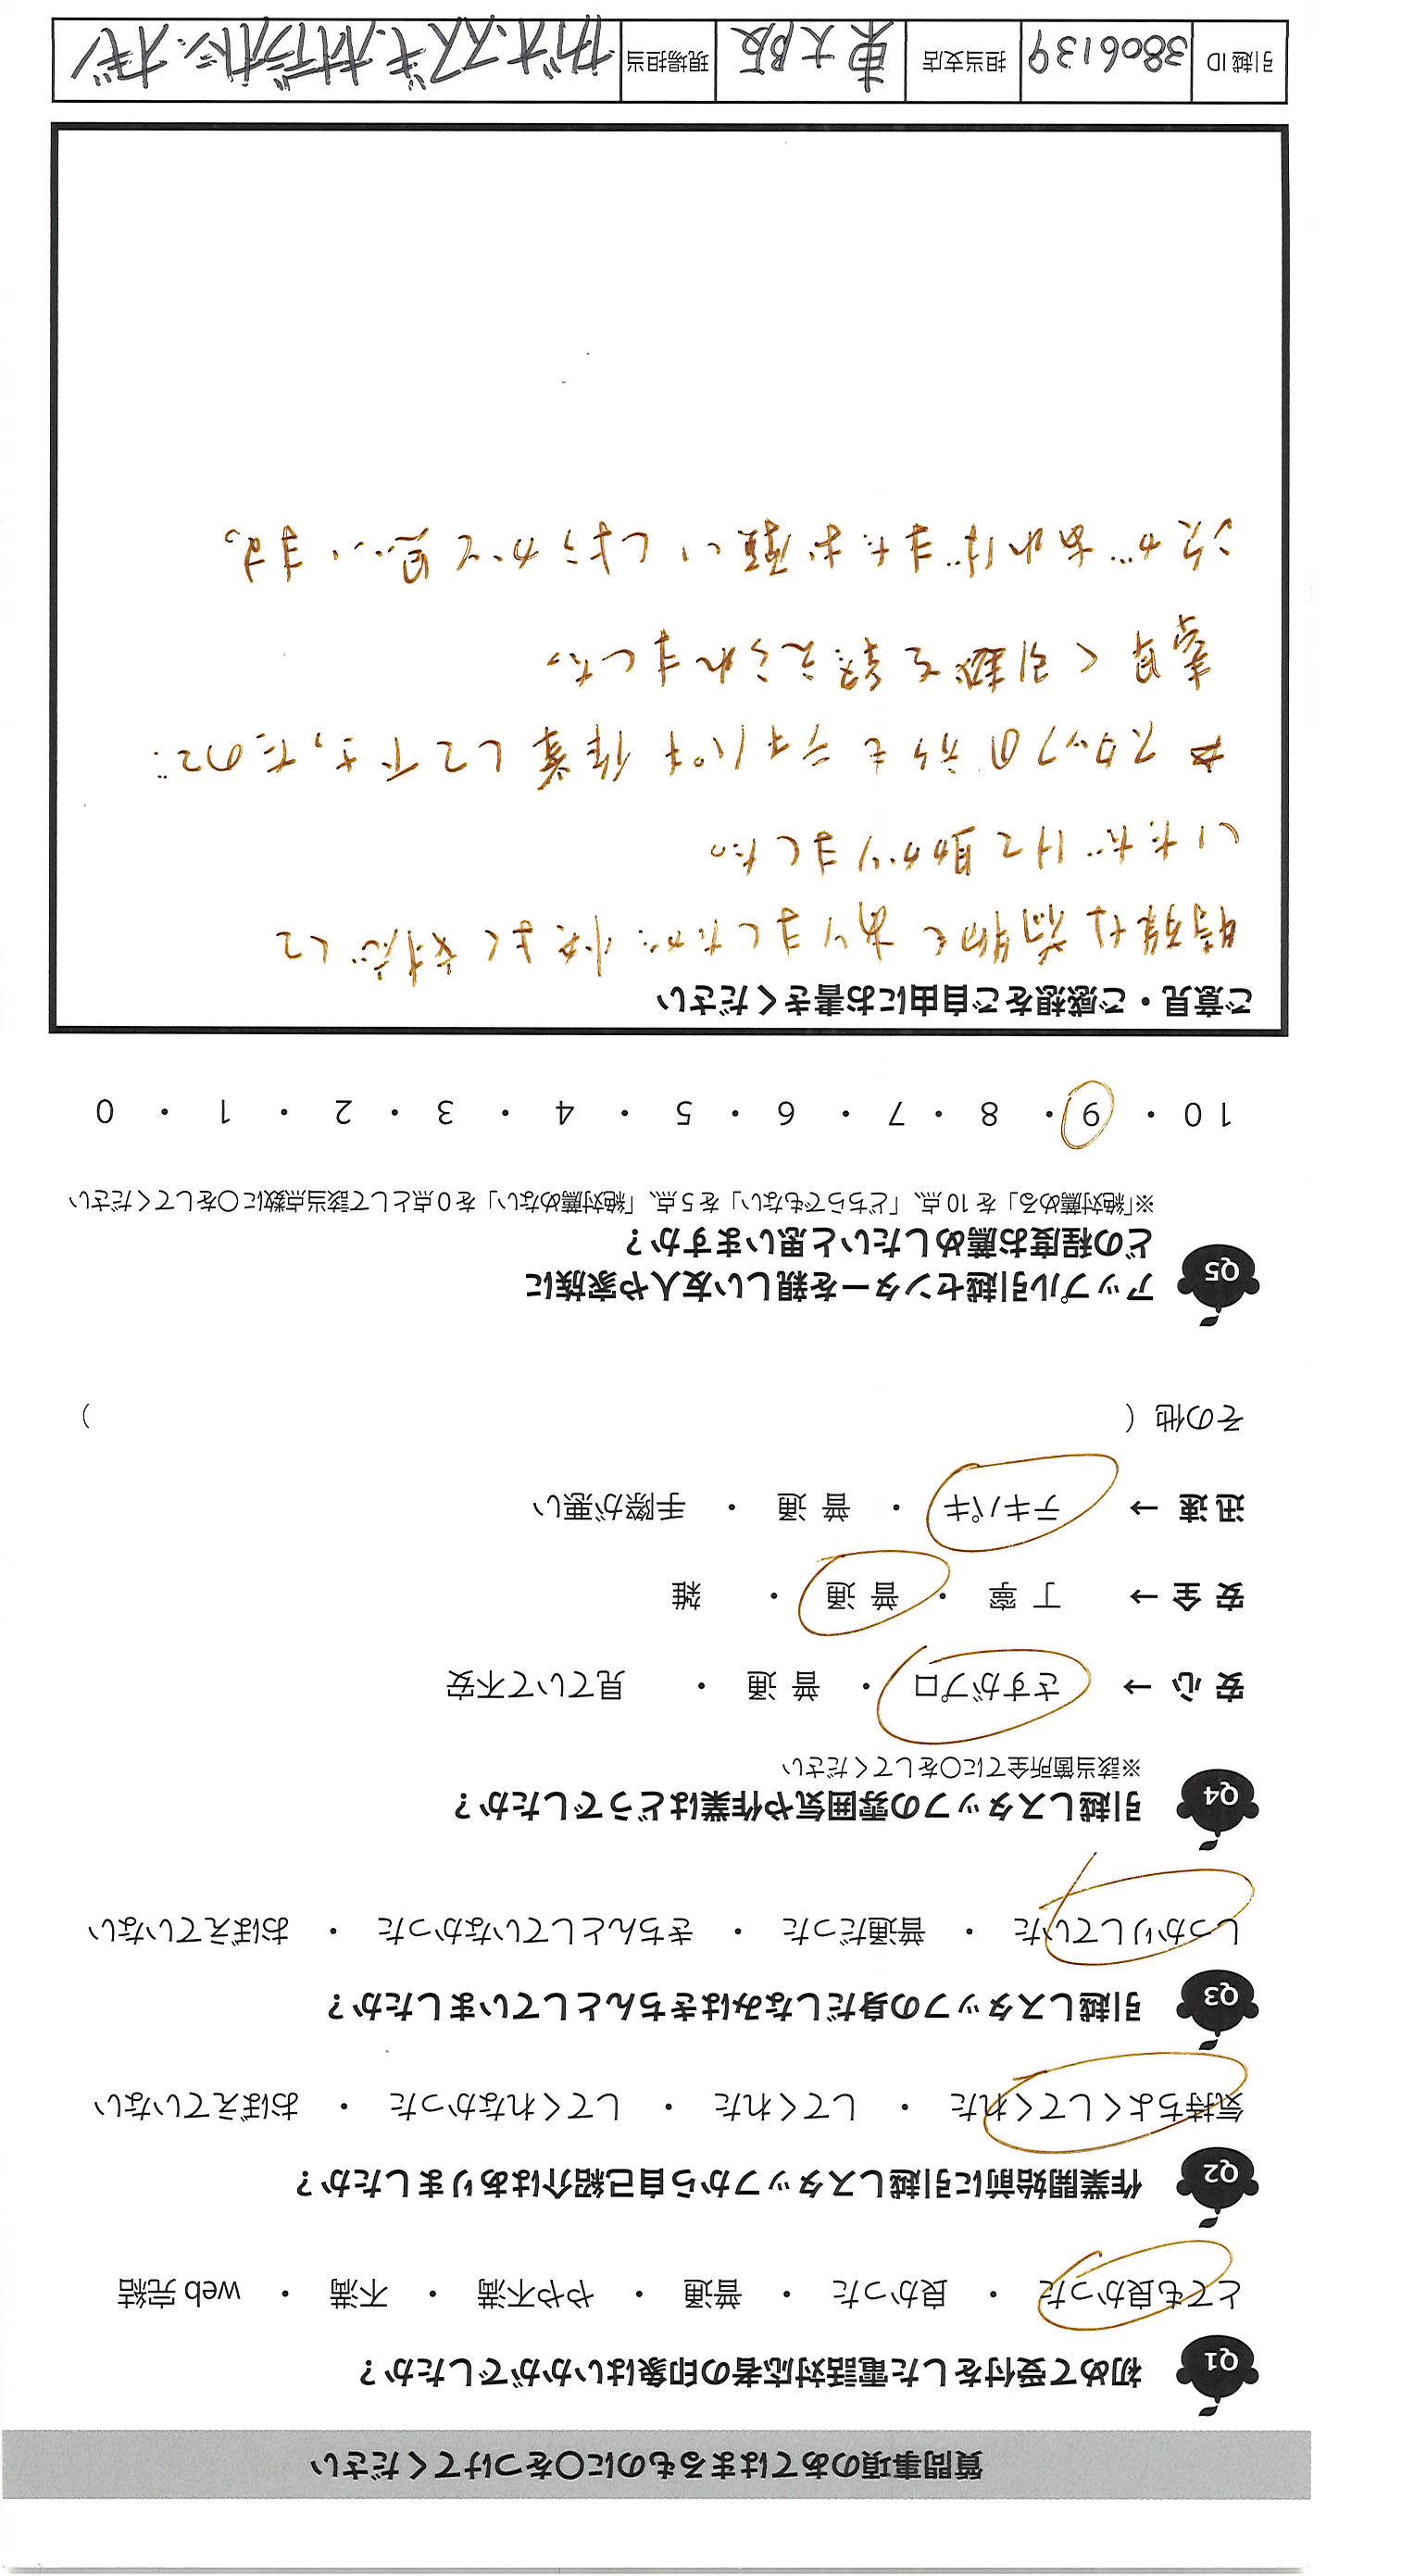 質問事項のあてはまるものに〇をつけてください
Q1 初めて受付をした電話対応者の印象はいかがでしたか？
とても良かった ・ 良かった ・ 普通 ・ やや不満 ・ 不満 ・ web 完結
Q2 作業開始前に引越しスタッフから自己紹介はありましたか？
気持ちよくしてくれた ・ してくれた ・ してくれなかった ・ おぼえていない
Q3 引越しスタッフの身だしなみはきちんとしていましたか？
しっかりしていた ・ 普通だった ・ きちんとしていなかった ・ おぼえていない
Q4 引越しスタッフの雰囲気や作業はどうでしたか？
※該当箇所全てに〇をしてください
安心 → さすがプロ ・ 普通 ・ 見ていて不安
安全 → 丁寧 ・ 普通 ・ 雑
迅速 → テキパキ ・ 普通 ・ 手際が悪い
その他（ ）
Q5 アップル引越センターを親しい友人や家族に
どの程度お薦めしたいと思いますか？
※「絶対薦める」を 10 点、「どちらでもない」を 5 点、「絶対薦めない」を 0 点として該当点数に〇をしてください
10 ・ 9 ・ 8 ・ 7 ・ 6 ・ 5 ・ 4 ・ 3 ・ 2 ・ 1 ・ 0
ご意見・ご感想をご自由にお書きください
特殊な荷物もありましたが 快よく対応して
いただけて助かりました。
スタッフの方もテキパキ作業して下さったので
素早く引越を終えられました。
次があればまたお願いしようかと思います。
引越 ID 3806139 担当支店 東大阪 現場担当